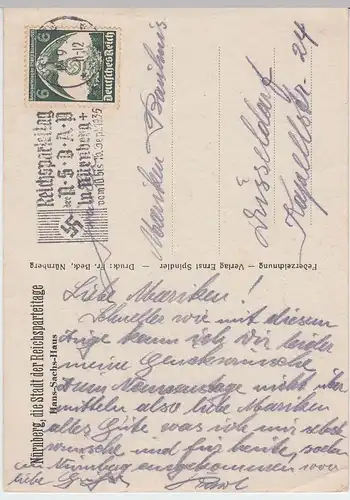 6
6
Deutsches Reich
Reichsparteitag
der N·S·D·A·P
in Nürnberg
vom 10. bis 16. Sept. 1935
Mariken
Düsseldorf
Kapellstr. 24
Federzeichnung — Verlag Ernst Spindler — Druck: Fr. Beck, Nürnberg
Nürnberg, die Stadt der Reichsparteitage
Hans-Sachs-Haus
Liebe Mariken!
Schneller wie mit diesem
kann ich Dir leider
meine Glückwünsche
zum Namenstage nicht über
mitteln also liebe Mariken
alles Gute was ich mir selbst
wünsche und für heute,
Nürnberg angekommen
liebe Grüße